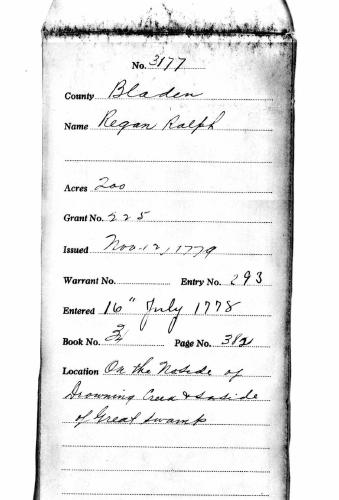 No. 3177
County Bladen
Name Regan Ralph
Acres 200
Grant No. 225
Issued Nov. 12, 1779
Warrant No. Entry No. 293
Entered 16" July 1778
Book No. Page No. 382
Location On the No side of
Drowning Creek & So side
of Great Swamp